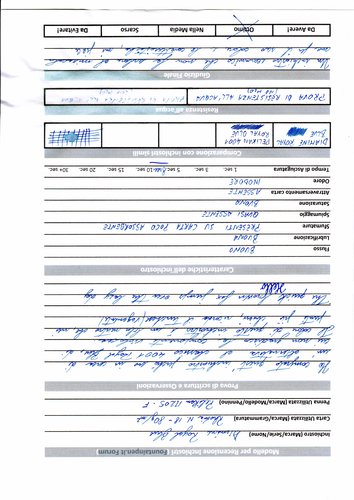 Modello per Recensione Inchiostri (Fountainpen.it Forum)
Inchiostro (Marca/Serie/Nome) Diamine Royal Blue
Carta Utilizzata (Marca/Grammatura) Rhodia N. 18 - 80g/m2
Penna Utilizzata (Marca/Modello/Pennino) Pelikan M205 - F
Prova di scrittura e Osservazioni
Ho comprato quest'inchiostro perché ero in cerca di
un'alternativa al classico 4001 Royal Blue, di
cui non gradisco la componente
Il colore di questo inchiostro è un blu che mi
più
The quick brown fox jumps over the lazy dog
Hello
Caratteristiche dell'inchiostro
Flusso BUONO
Lubrificazione BUONA
Sfumature PRESENTI SU CARTA POCO ASSORBENTE
Spiumaggio QUASI ASSENTE
Saturazione BUONA
Attraversamento carta ASSENTE
Odore INODORE
Tempo di Asciugatura 1 sec. 3 sec. 5 sec. 10 sec. 15 sec. 20 sec. 30+ sec.
Comparazione con inchiostri simili
DIAMINE ROYAL PELIKAN 4001
BLUE ROYAL BLUE
Resistenza all'acqua
PROVA DI RESISTENZA ALL'ACQUA PROVA DI RESISTENZA ALL'ACQUA
Giudizio Finale
Un inchiostro economico che non fa
ma, per il suo colore e le caratteristiche, mi piace
Da Avere! Ottimo Nella Media Scarso Da Evitare!